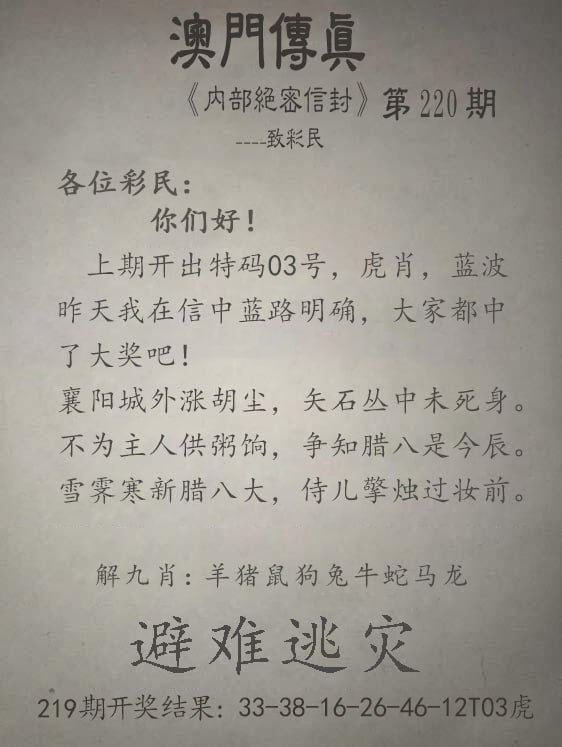 澳門傳眞
《内部絕密信封》第 220 期
----致彩民
各位彩民：
你们好！
上期开出特码03号，虎肖，蓝波
昨天我在信中蓝路明确，大家都中
了大奖吧！
襄阳城外涨胡尘，矢石丛中未死身。
不为主人供粥饷，争知腊八是今辰。
雪霁寒新腊八大，侍儿擎烛过妆前。
解九肖：羊猪鼠狗兔牛蛇马龙
避难逃灾
219期开奖结果：33-38-16-26-46-12T03虎